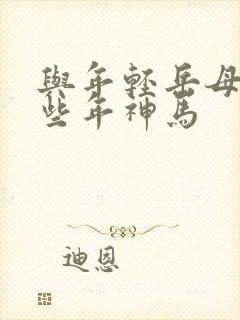 與年輕岳母
些年神馬
迪恩